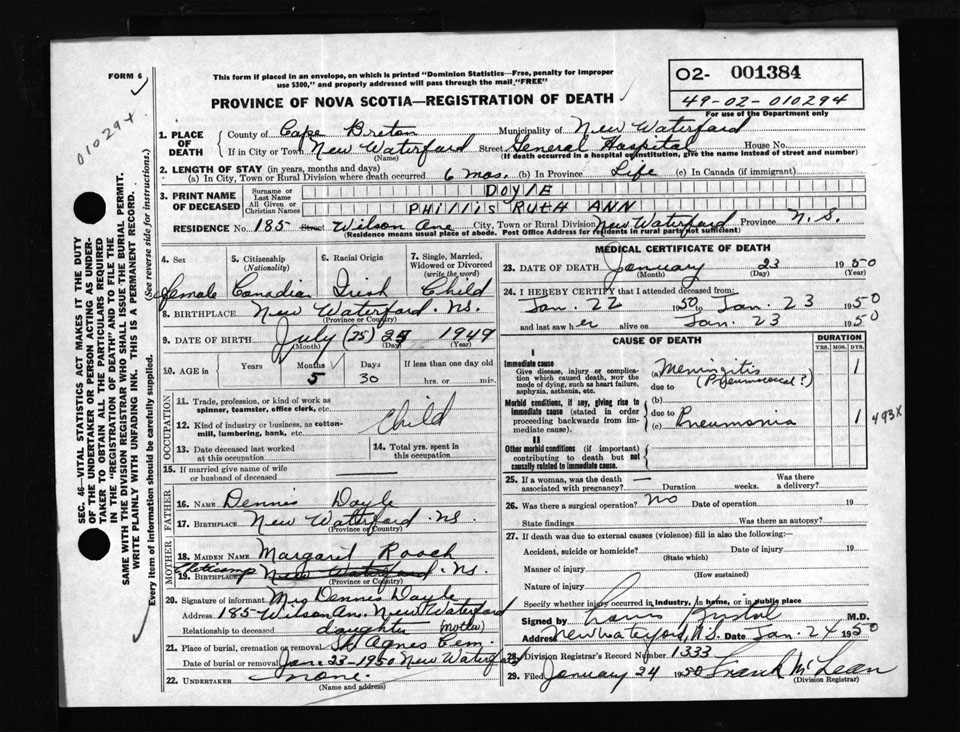 FORM 6
This form if placed in an envelope, on which is printed "Dominion Statistics—Free, penalty for improper
use $300," and properly addressed will pass through the mail "FREE"
PROVINCE OF NOVA SCOTIA—REGISTRATION OF DEATH
O2- 001384
49-02-010294
For use of the Department only
010294.
SEC. 46—VITAL STATISTICS ACT MAKES IT THE DUTY
OF THE UNDERTAKER OR PERSON ACTING AS UNDER-
TAKER TO OBTAIN ALL THE PARTICULARS REQUIRED
IN THE "REGISTRATION OF DEATH" AND TO FILE THE
SAME WITH THE DIVISION REGISTRAR WHO SHALL ISSUE THE BURIAL PERMIT.
WRITE PLAINLY WITH UNFADING INK. THIS IS A PERMANENT RECORD.
Every item of information should be carefully supplied. (See reverse side for instructions.)
1. PLACE OF DEATH
County of Cape Breton Municipality of New Waterford
If in City or Town New Waterford Street General Hospital House No.
(Name) (If death occurred in a hospital or institution, give the name instead of street and number)
2. LENGTH OF STAY (in years, months and days)
(a) In City, Town or Rural Division where death occurred 6 mos. (b) In Province Life (c) In Canada (if immigrant)
3. PRINT NAME OF DECEASED
Surname or Last Name DOYLE
All Given or Christian Names PHILLIS RUTH ANN
RESIDENCE No. 185 Street Wilson Ave City, Town or Rural Division New Waterford Province N.S.
(Residence means usual place of abode. Post Office Address for residents in rural parts not sufficient)
4. Sex
Female
5. Citizenship (Nationality)
Canadian
6. Racial Origin
Irish
7. Single, Married, Widowed or Divorced (write the word)
Child
8. BIRTHPLACE New Waterford. NS.
(Province or Country)
9. DATE OF BIRTH July (25) 25 1949
(Month) (Day) (Year)
10. AGE in Years Months 5 Days 30 If less than one day old hrs. or min.
OCCUPATION
11. Trade, profession, or kind of work as spinner, teamster, office clerk, etc.
Child
12. Kind of industry or business, as cotton-mill, lumbering, bank, etc.
13. Date deceased last worked at this occupation
14. Total yrs. spent in this occupation.
15. If married give name of wife or husband of deceased —
FATHER
16. NAME Dennis Doyle
17. BIRTHPLACE New Waterford. NS.
(Province or Country)
MOTHER
18. MAIDEN NAME Margaret Roach
19. BIRTHPLACE New Waterford NS.
(Province or Country)
20. Signature of informant Mrs Dennis Doyle
Address 185 Wilson Av. New Waterford
Relationship to deceased daughter (Mother)
21. Place of burial, cremation or removal St Agnes Cem
Date of burial or removal Jan 23-1950 New Waterford
22. UNDERTAKER none.
(Name and address)
MEDICAL CERTIFICATE OF DEATH
23. DATE OF DEATH January 23 1950
(Month) (Day) (Year)
24. I HEREBY CERTIFY that I attended deceased from:
Jan. 22 1950 to Jan. 23 1950
and last saw her alive on Jan. 23 1950
CAUSE OF DEATH
DURATION
YRS. MOS. DYS.
I
Immediate cause
Give disease, injury or complication which caused death, NOT the mode of dying, such as heart failure, asphyxia, asthenia, etc.
(a) Meningitis (Pneumococcal?) 1
due to
(b)
Morbid conditions, if any, giving rise to immediate cause (stated in order proceeding backwards from immediate cause).
due to
(c) Pneumonia 1
493X
II
Other morbid conditions (if important) contributing to death but not causally related to immediate cause.
25. If a woman, was the death associated with pregnancy? — Duration weeks. Was there a delivery?
26. Was there a surgical operation? NO Date of operation 19
State findings Was there an autopsy?
27. If death was due to external causes (violence) fill in also the following:—
Accident, suicide or homicide? Date of injury 19
(State which)
Manner of injury
(How sustained)
Nature of injury
Specify whether injury occurred in industry, in home, or in public place
Signed by M.D.
Address New Waterford, N.S. Date Jan. 24 1950
28. Division Registrar's Record Number 1333
29. Filed January 24 1950 Frank McLean
(Division Registrar)